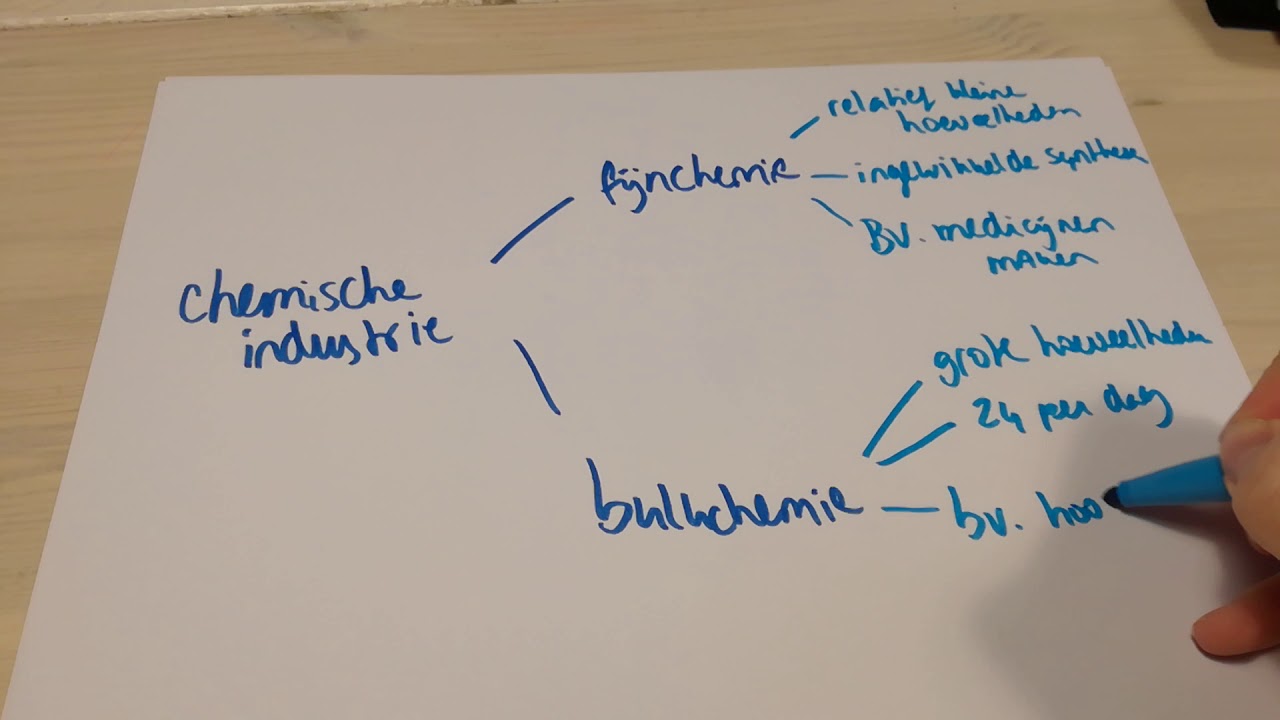 relatief kleine
hoeveelheden
fijnchemie
ingewikkelde synthese
Bv. medicijnen
maken
chemische
industrie
grote hoeveelheden
24 per dag
bulkchemie
bv. hoo